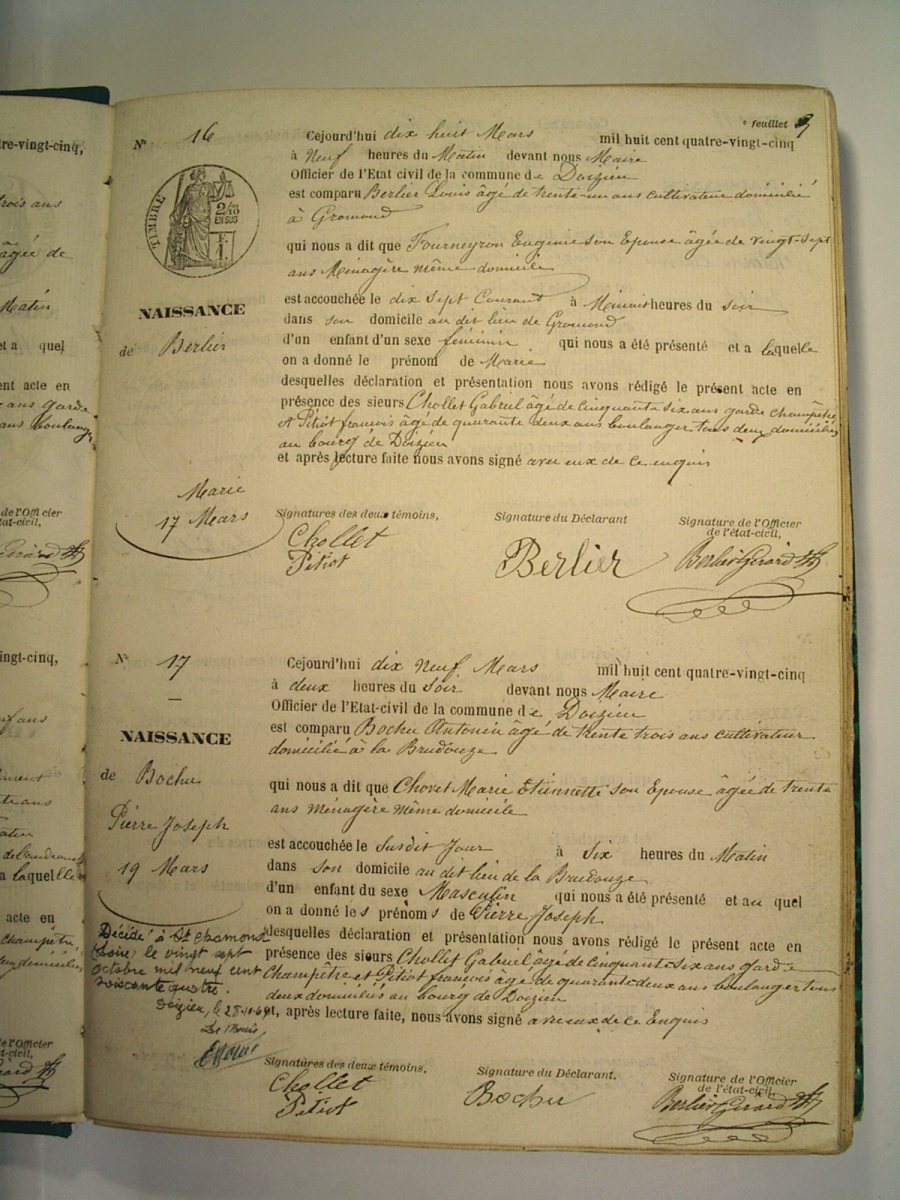 e feuillet 9
Nº 16
Cejourd'hui dix huit Mars mil huit cent quatre-vingt-cinq
à Neuf heures du Matin devant nous Maire
Officier de l'Etat civil de la commune de Doizieu
est comparu Berlier Louis âgé de trente-un ans cultivateur domicilié
à Gromond
qui nous a dit que Fourneyron Eugénie son Epouse âgée de vingt-sept
ans Ménagère même domicile
est accouchée le dix sept Courant à Minuit heures du Soir
dans son domicile au dit lieu de Gromond
d'un enfant d'un sexe féminin qui nous a été présenté et a laquelle
on a donné le prénom de Marie
desquelles déclaration et présentation nous avons rédigé le présent acte en
présence des sieurs Chollet Gabriel âgé de cinquante six ans garde champêtre
et Pitiot françois âgé de quarante deux ans boulanger tous deux domiciliés
au bourg de Doizieu
et après lecture faite nous avons signé avec eux de ce enquis
TIMBRE
2/10
EN SUS
NAISSANCE
de Berlier
Marie
17 Mars
Signatures des deux témoins,
Chollet
Pitiot
Signature du Déclarant
Berlier
Signature de l'Officier
de l'état-civil,
Berlier Girard
Nº 17
Cejourd'hui dix Neuf Mars mil huit cent quatre-vingt-cinq
à deux heures du Soir devant nous Maire
Officier de l'Etat-civil de la commune de Doizieu
est comparu Bochu Antonin âgé de trente trois ans cultivateur
domicilié à la Brudouze
qui nous a dit que Chovet Marie Etiennette son Epouse âgée de trente
ans ménagère même domicile
est accouchée le Susdit Jour à Six heures du Matin
dans son domicile au dit lieu de la Brudouze
d'un enfant du sexe Masculin qui nous a été présenté et au quel
on a donné les prénoms de Pierre Joseph
desquelles déclaration et présentation nous avons rédigé le présent acte en
présence des sieurs Chollet Gabriel âgé de cinquante-six ans garde
Champêtre et Pitiot françois âgé de quarante deux ans boulanger tous
deux domiciliés au bourg de Doizieu
et, après lecture faite, nous avons signé avec eux de ce Enquis
NAISSANCE
de Bochu
Pierre Joseph
19 Mars
Décédé à St Chamond
(Loire) le vingt sept
Octobre mil neuf cent
soixante quatre.
Doizieu, le 28-10-64
Le Maire,
Signatures des deux témoins,
Chollet
Pitiot
Signature du Déclarant,
Bochu
Signature de l'Officier
de l'état-civil,
Berlier Girard